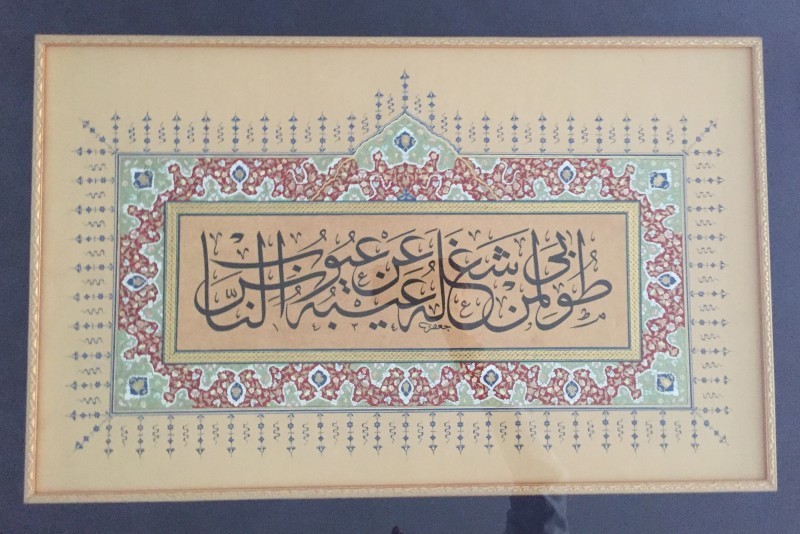 طُوبَى لِمَنْ شَغَلَهُ عَيْبُهُ عَنْ عُيُوبِ النَّاسِ
١٤٣٤